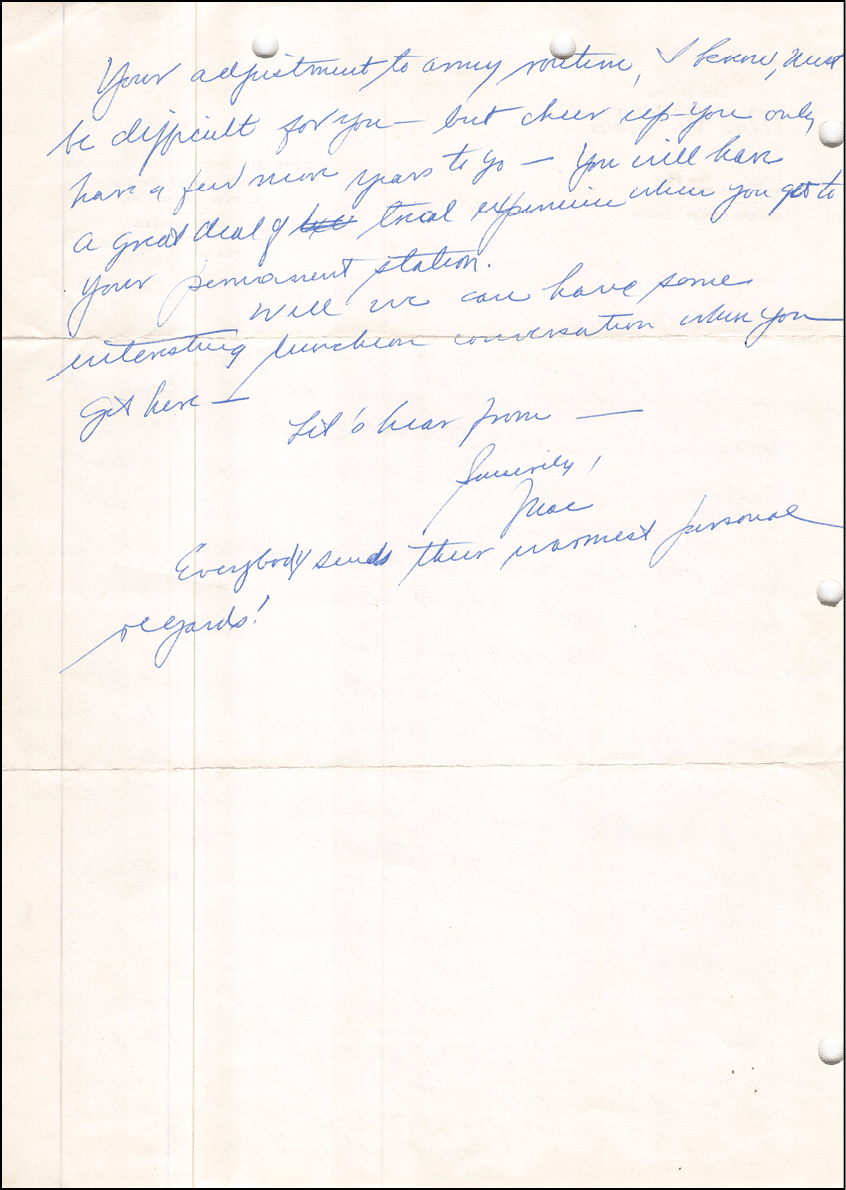 Your adjustment to army routine, I know, must
be difficult for you — but cheer up — You only
have a few more years to go — You will have
a great deal of trial experience when you get to
your permanent station.
Well we can have some
interesting luncheon conversation when you
get here —
Let's hear from —
Sincerely,
Mac
Everybody sends their warmest personal
regards!